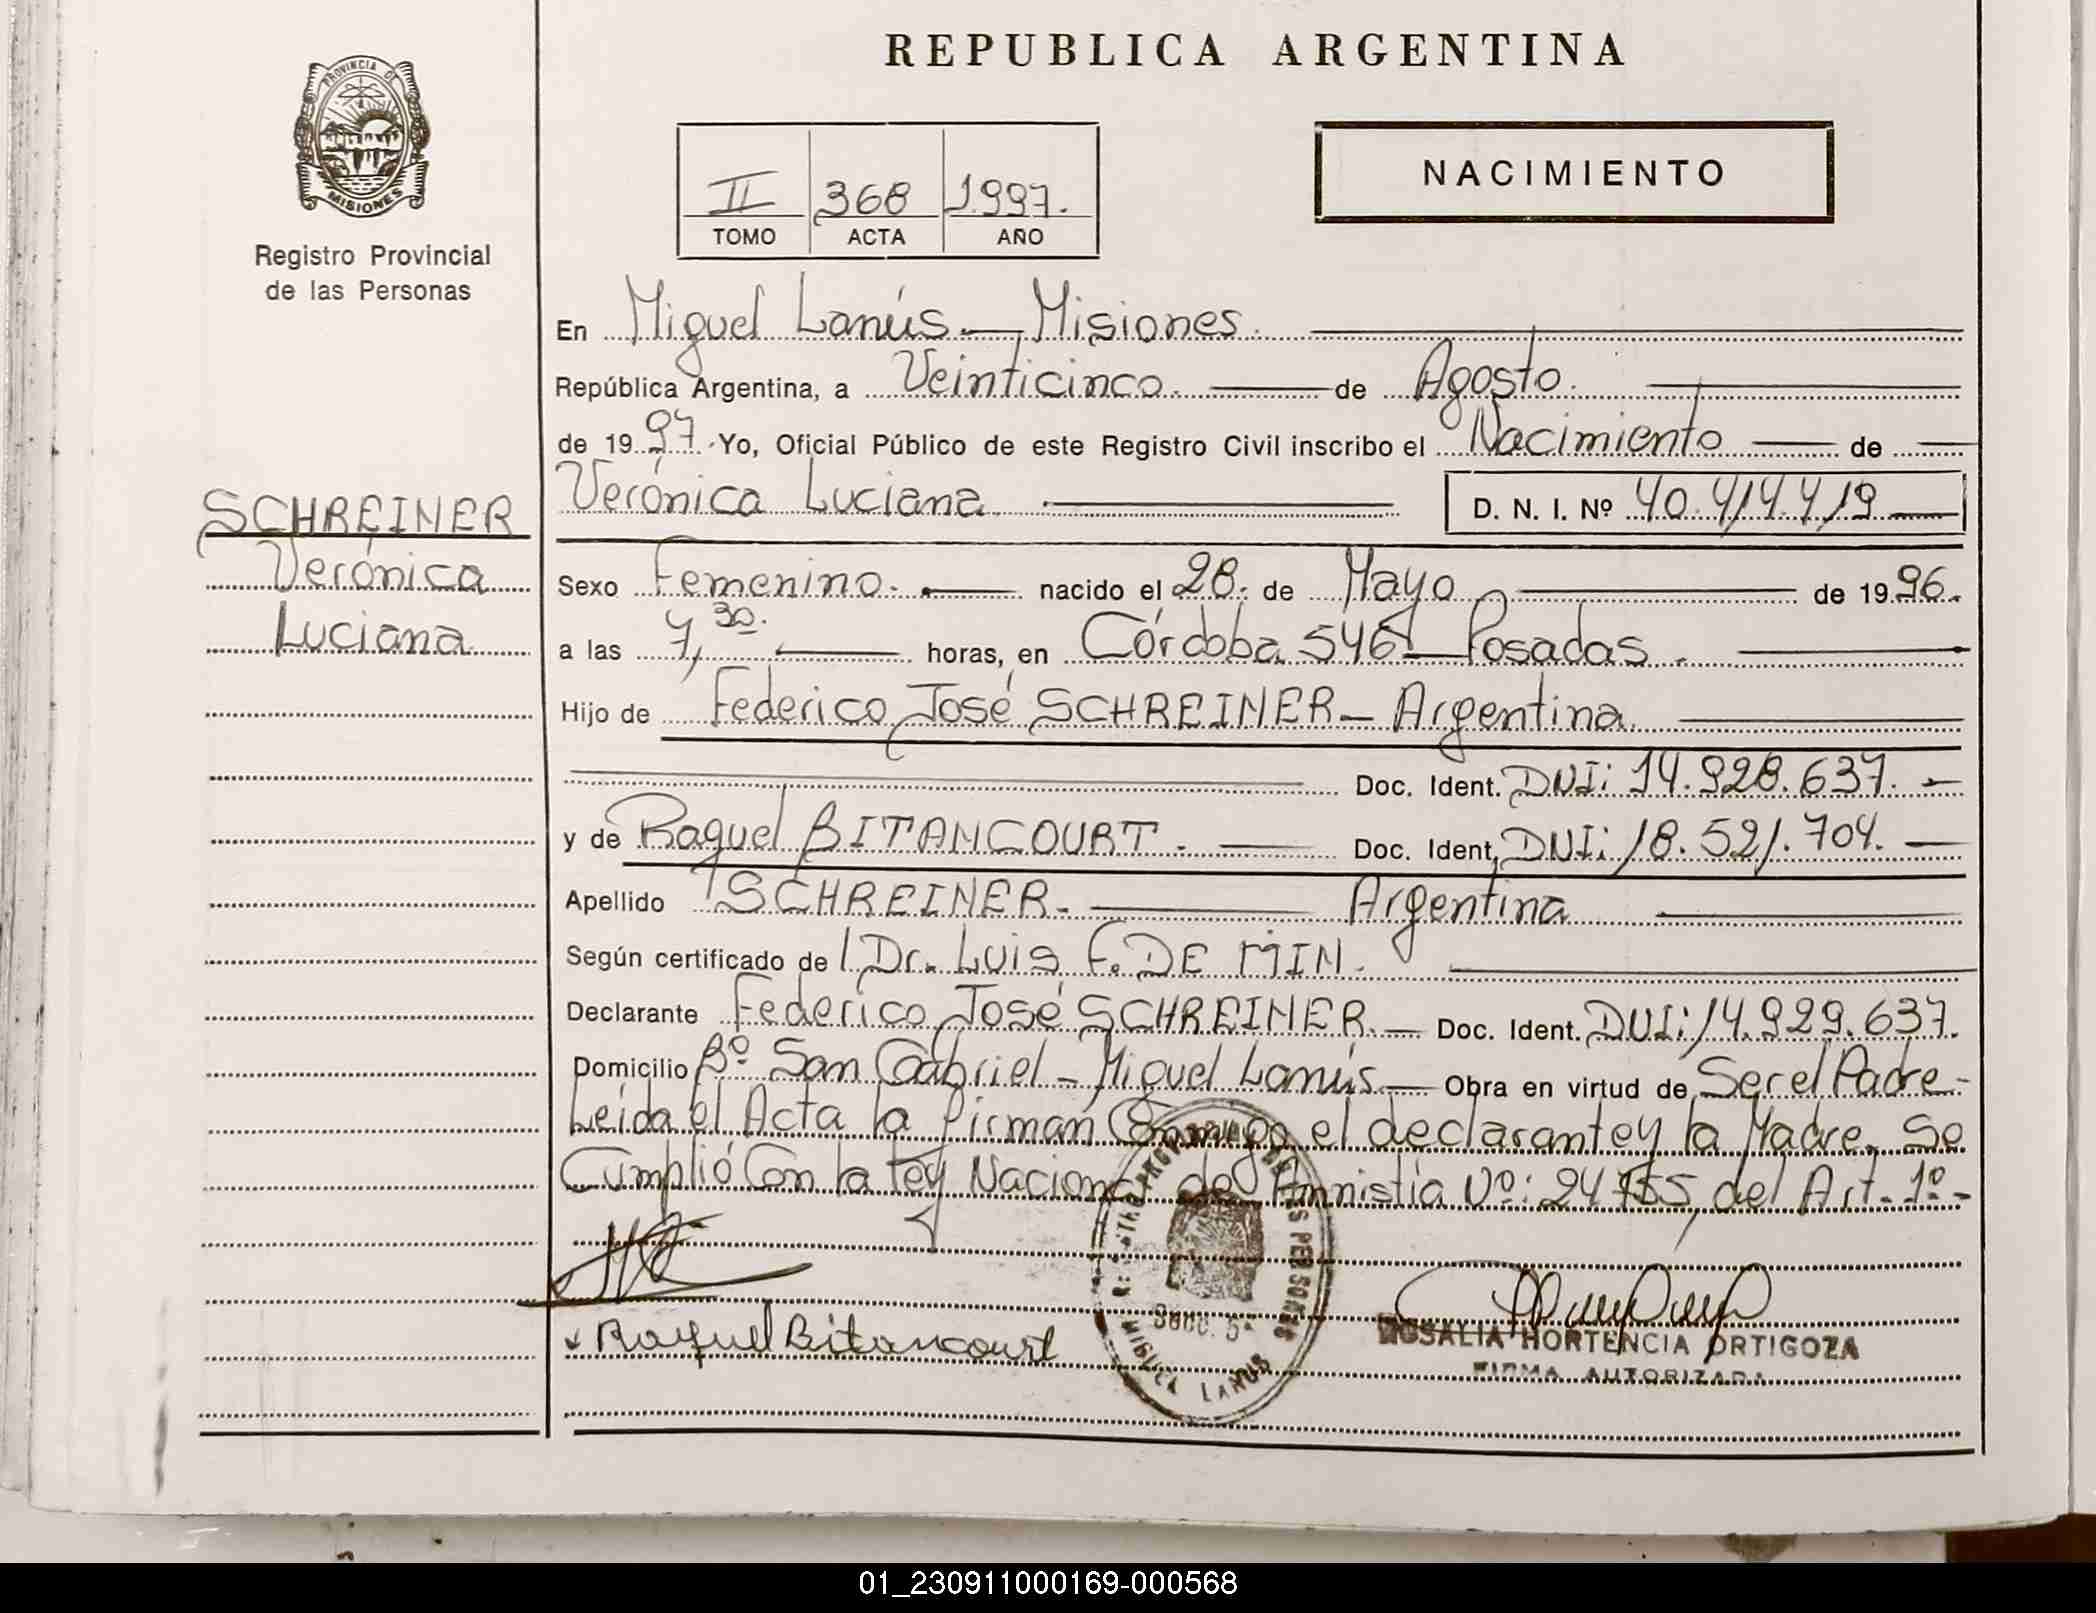 REPUBLICA ARGENTINA
PROVINCIA DE
MISIONES
Registro Provincial
de las Personas
II 368 1.997.
TOMO ACTA AÑO
NACIMIENTO
En Miguel Lanús - Misiones.
República Argentina, a Veinticinco. de Agosto.
de 19 97. Yo, Oficial Público de este Registro Civil inscribo el Nacimiento de
Verónica Luciana D. N. I. Nº 40.414.419
SCHREINER
Verónica
Luciana
Sexo Femenino. nacido el 28. de Mayo de 19 96.
a las 7,30. horas, en Córdoba 546 - Posadas.
Hijo de Federico José SCHREINER - Argentina.
Doc. Ident. DNI: 14.928.637. -
y de Raquel BITANCOURT. Doc. Ident. DNI: 18.521.704. -
Apellido SCHREINER. Argentina
Según certificado de Dr. Luis F. DE MIN.
Declarante Federico José SCHREINER. - Doc. Ident. DNI: 14.929.637.
Domicilio Bº San Gabriel - Miguel Lanús - Obra en virtud de Ser el Padre -
Leída el Acta la firman Conmigo el declarante y la Madre. Se
Cumplió Con la Ley Nacional de Amnistía Nº: 24755, del Art. 1º -
Raquel Bitancourt
MIGUEL LANUS
ROSALIA HORTENCIA ORTIGOZA
FIRMA AUTORIZADA
01_230911000169-000568